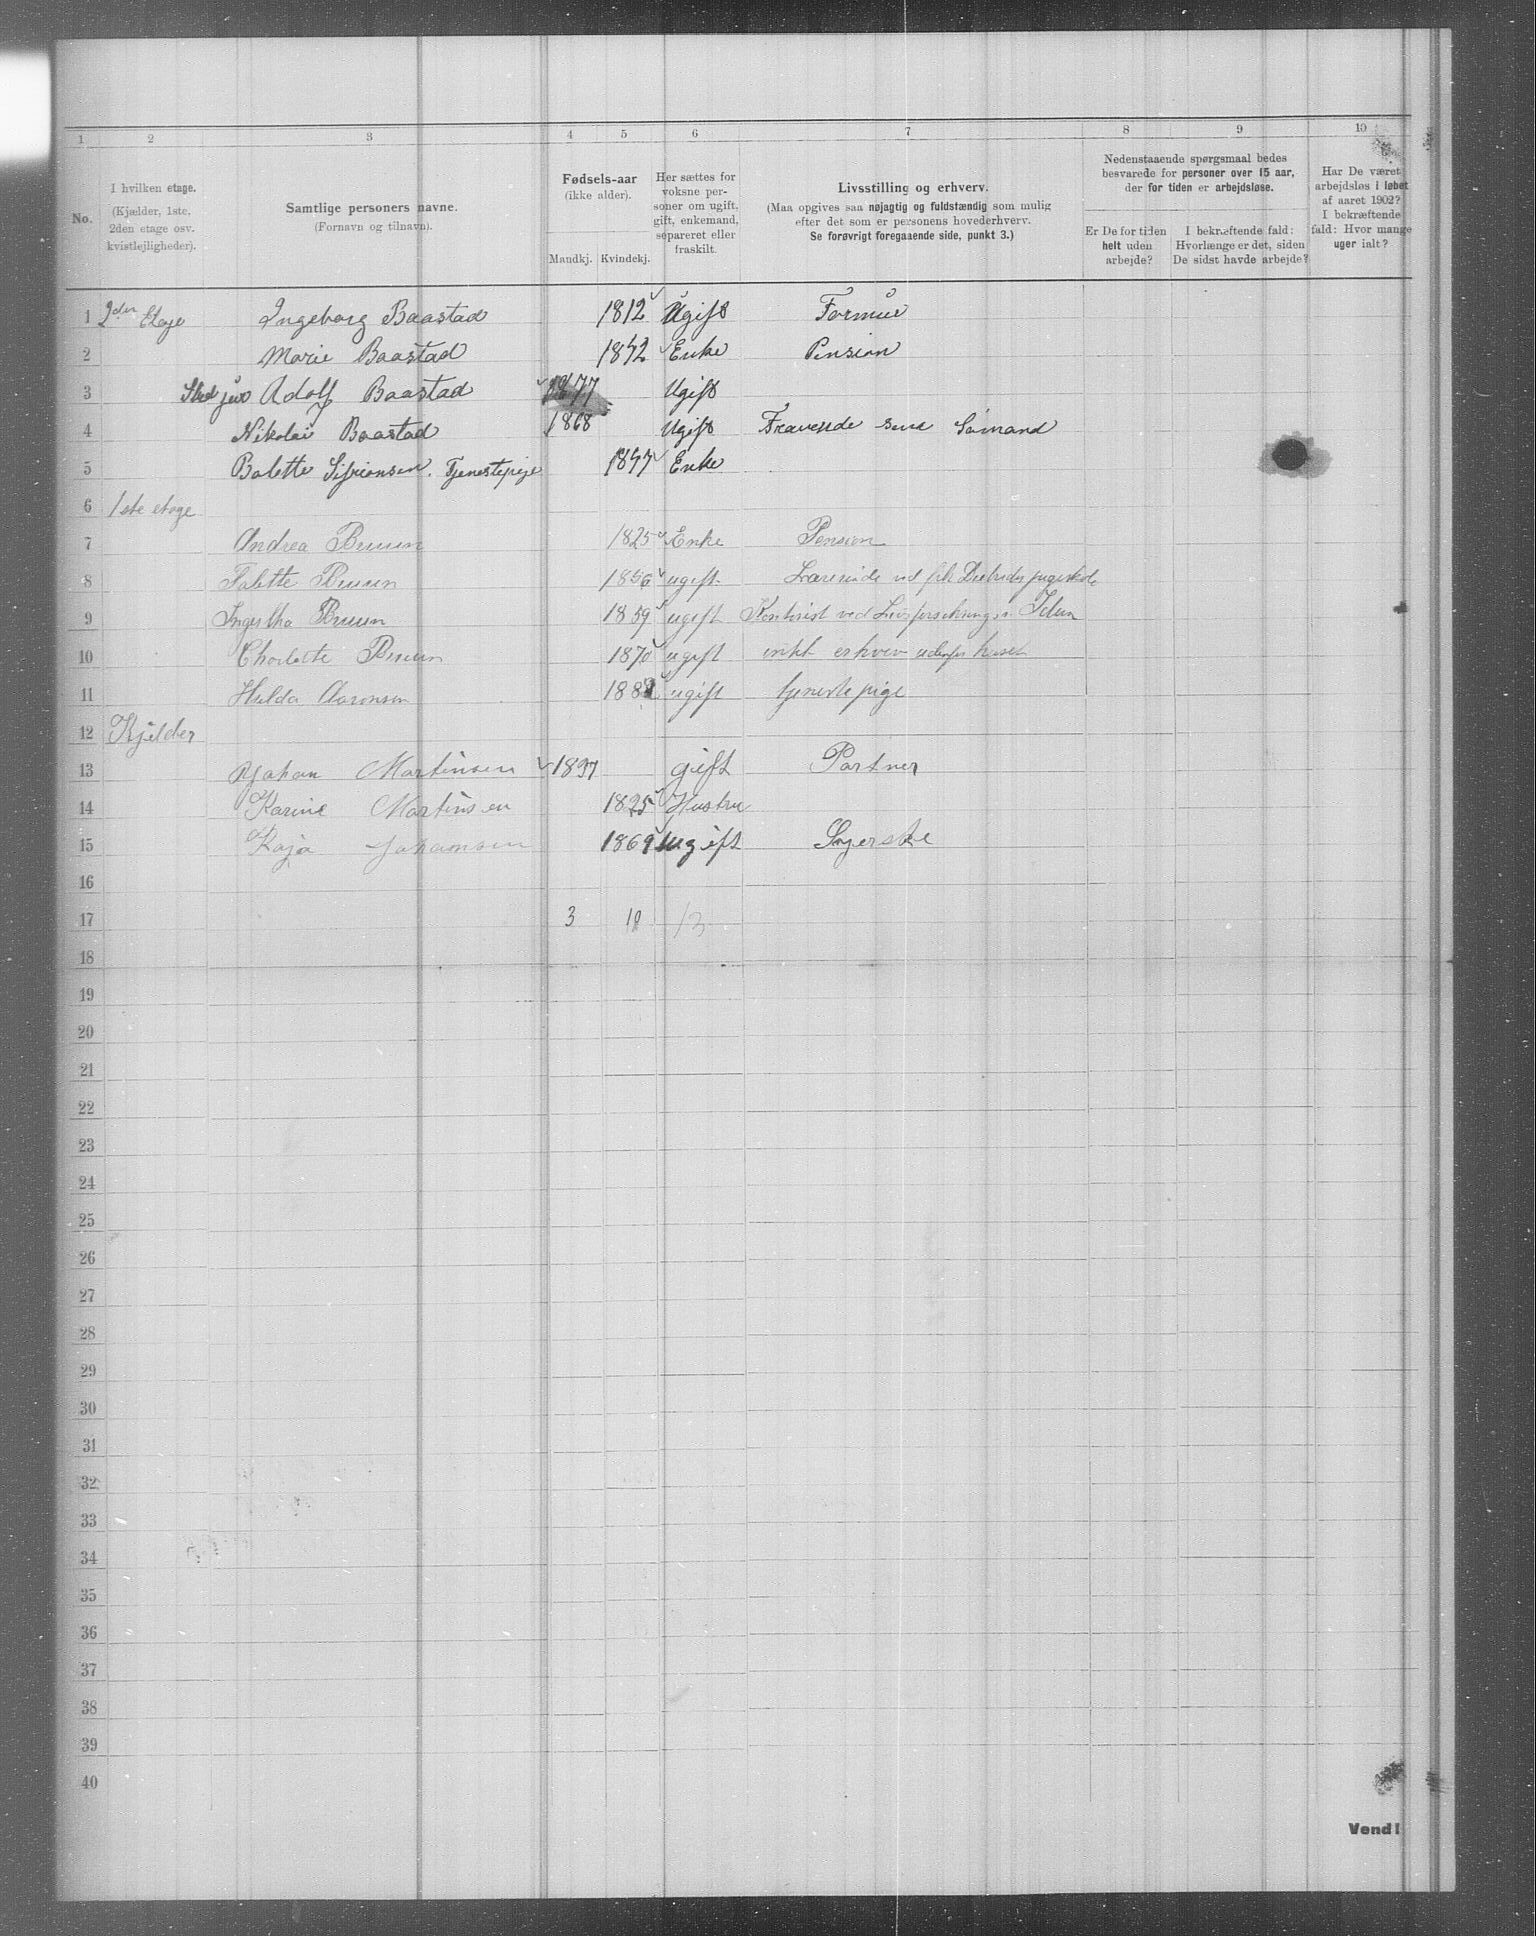 1 2 3 4 5 6 7 8 9 10
No.
I hvilken etage.
(Kjælder, 1ste.
2den etage osv.
kvistlejligheder).
Samtlige personers navne.
(Fornavn og tilnavn).
Fødsels-aar
(ikke alder).
Mandkj. Kvindekj.
Her sættes for
voksne per-
soner om ugift,
gift, enkemand,
separeret eller
fraskilt.
Livsstilling og erhverv.
(Maa opgives saa nøjagtig og fuldstændig som mulig
efter det som er personens hovederhverv.
Se forøvrigt foregaaende side, punkt 3.)
Nedenstaaende spørgsmaal bedes
besvarede for personer over 15 aar,
der for tiden er arbejdsløse.
Er De for tiden
helt uden
arbejde?
I bekræftende fald:
Hvorlænge er det, siden
De sidst havde arbejde?
Har De været
arbejdsløs i løbet
af aaret 1902?
I bekræftende
fald: Hvor mange
uger ialt?
1 2den Etage Ingeborg Baastad 1812 Ugift Formue
2 Marie Baastad 1842 Enke Pension
3 Adolf Baastad 1877 Ugift
4 Nikolai Baastad 1868 Ugift Fraværende Sømand
5 Bolette Tjenestepige 1847 Enke
6 1ste etage
7 Andrea Bruun 1825 Enke Pension
8 Bruun 1856 ugift. Lærerinde ved frk pigeskole
9 Bruun 1859 ugift Kontorist ved Livsforsikrings Idun
10 Charlotte Bruun 1870 ugift intet erhverv udenfor huset
11 Hulda Aaronsen 188 ugift tjenestepige
12 Kjelder
13 Johan Martinsen 1837 gift Portner
14 Karine Martinsen 1825 Hustru
15 Kaja Johansen 1869 ugift Syerske
16
17 3 10 13
18
19
20
21
22
23
24
25
26
27
28
29
30
31
32
33
34
35
36
37
38
39
40
Vend!